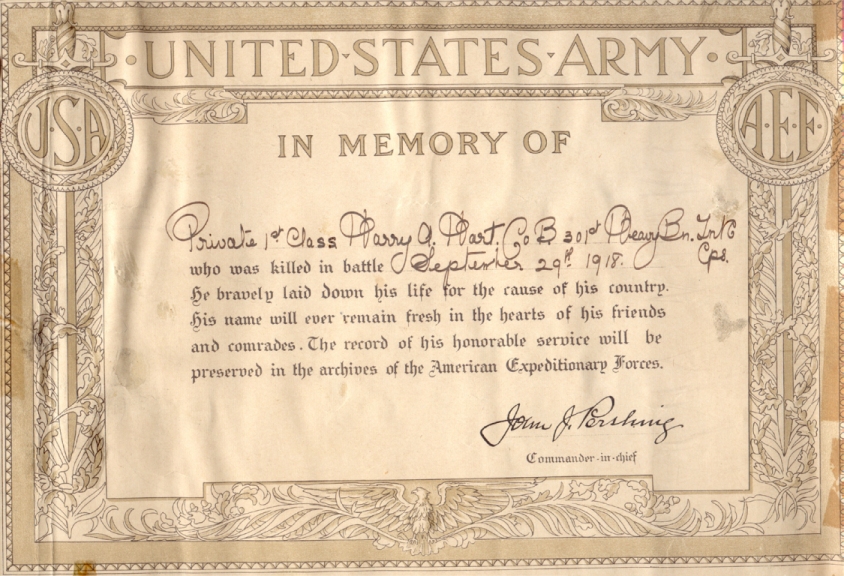 UNITED·STATES·ARMY
U·S·A
A·E·F
IN MEMORY OF
Private 1st Class Harry A. Hart, Co B 301st Heavy Bn. Tnk Cps.
who was killed in battle September 29th 1918.
He bravely laid down his life for the cause of his country.
His name will ever remain fresh in the hearts of his friends
and comrades. The record of his honorable service will be
preserved in the archives of the American Expeditionary Forces.
John J. Pershing
Commander-in-chief